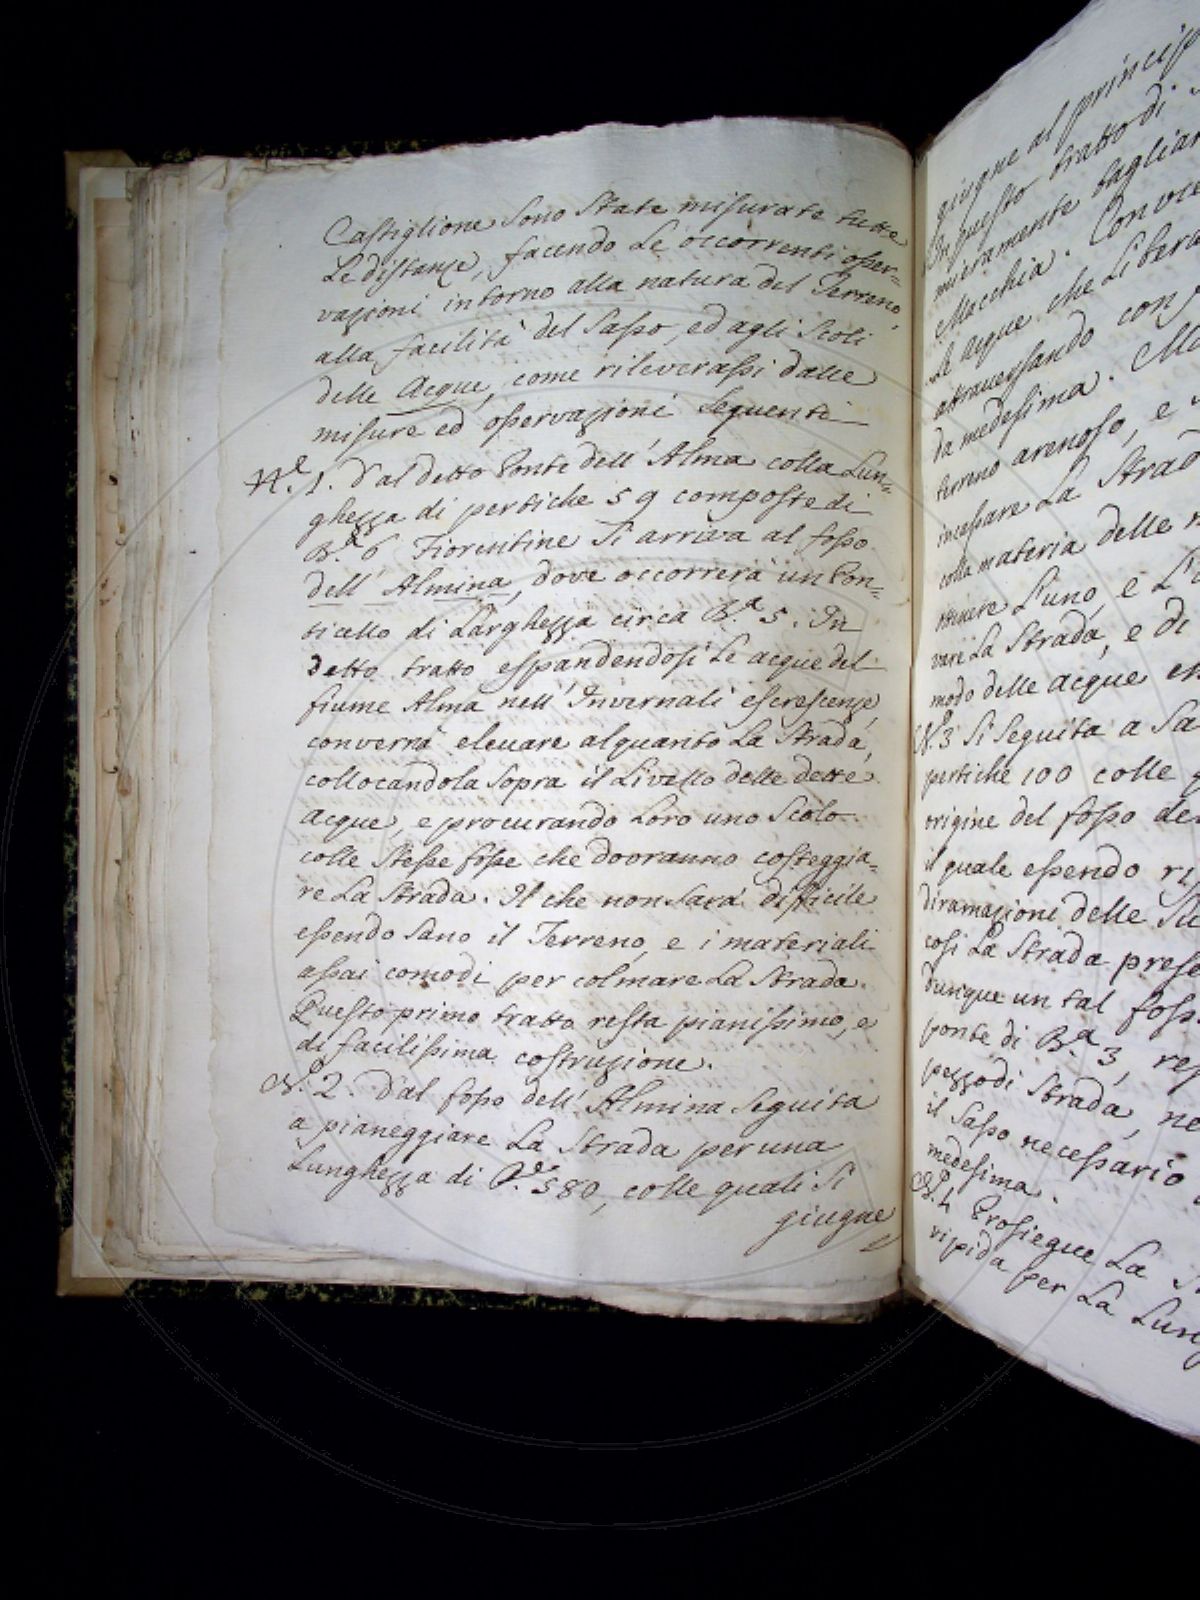 Castiglione sono state misurate tutte
le distanze, facendo le occorrenti osser-
vazioni intorno alla natura del Terreno,
alla facilità del Sasso, ed agli Scoli
delle Acque, come rileverassi dalle
misure ed osservazioni seguenti
N.º 1. Dal detto Ponte dell' Alma colla Lun-
ghezza di pertiche 59 composte di
B.ª 6 Fiorentine si arriva al fosso
dell' Almina, dove occorrerà un Pon-
ticello di Larghezza circa B.ª 5. In
detto tratto espandendosi le acque del
fiume Alma nell' Invernali escrescenze,
converrà elevare alquanto la Strada,
collocandola sopra il Livello delle dette
acque, e procurando Loro uno Scolo
colle stesse fosse che dovranno costeggia-
re La Strada. Il che non sarà difficile
essendo sano il Terreno, e i materiali
assai comodi per colmare La Strada.
Questo primo tratto resta pianissimo, e
di facilissima costruzione.
N. 2. Dal fosso dell' Almina seguita
a pianeggiare La Strada per una
Lunghezza di P.e 580, colle quali si
giugne
giugne al princip
In questo tratto di
mieramente tagliar
Macchia. Convie
Le acque che Libera
attraversando con
da medesima. Ma
terreno arenoso, e
incassare La Strad
colla materia delle
ttenere L'uno, e L'
vare La Strada, e di
modo delle acque
N.º 3 Si seguita a Sa
pertiche 100 colle
origine del fosso de
il quale essendo ri
diramazioni delle
così La Strada prese
dunque un tal foss
ponte di B.ª 3,
pezzo di Strada, ne
il Sasso necessario
medesima.
N.º 4 Prosiegue La
ripida per La Lung